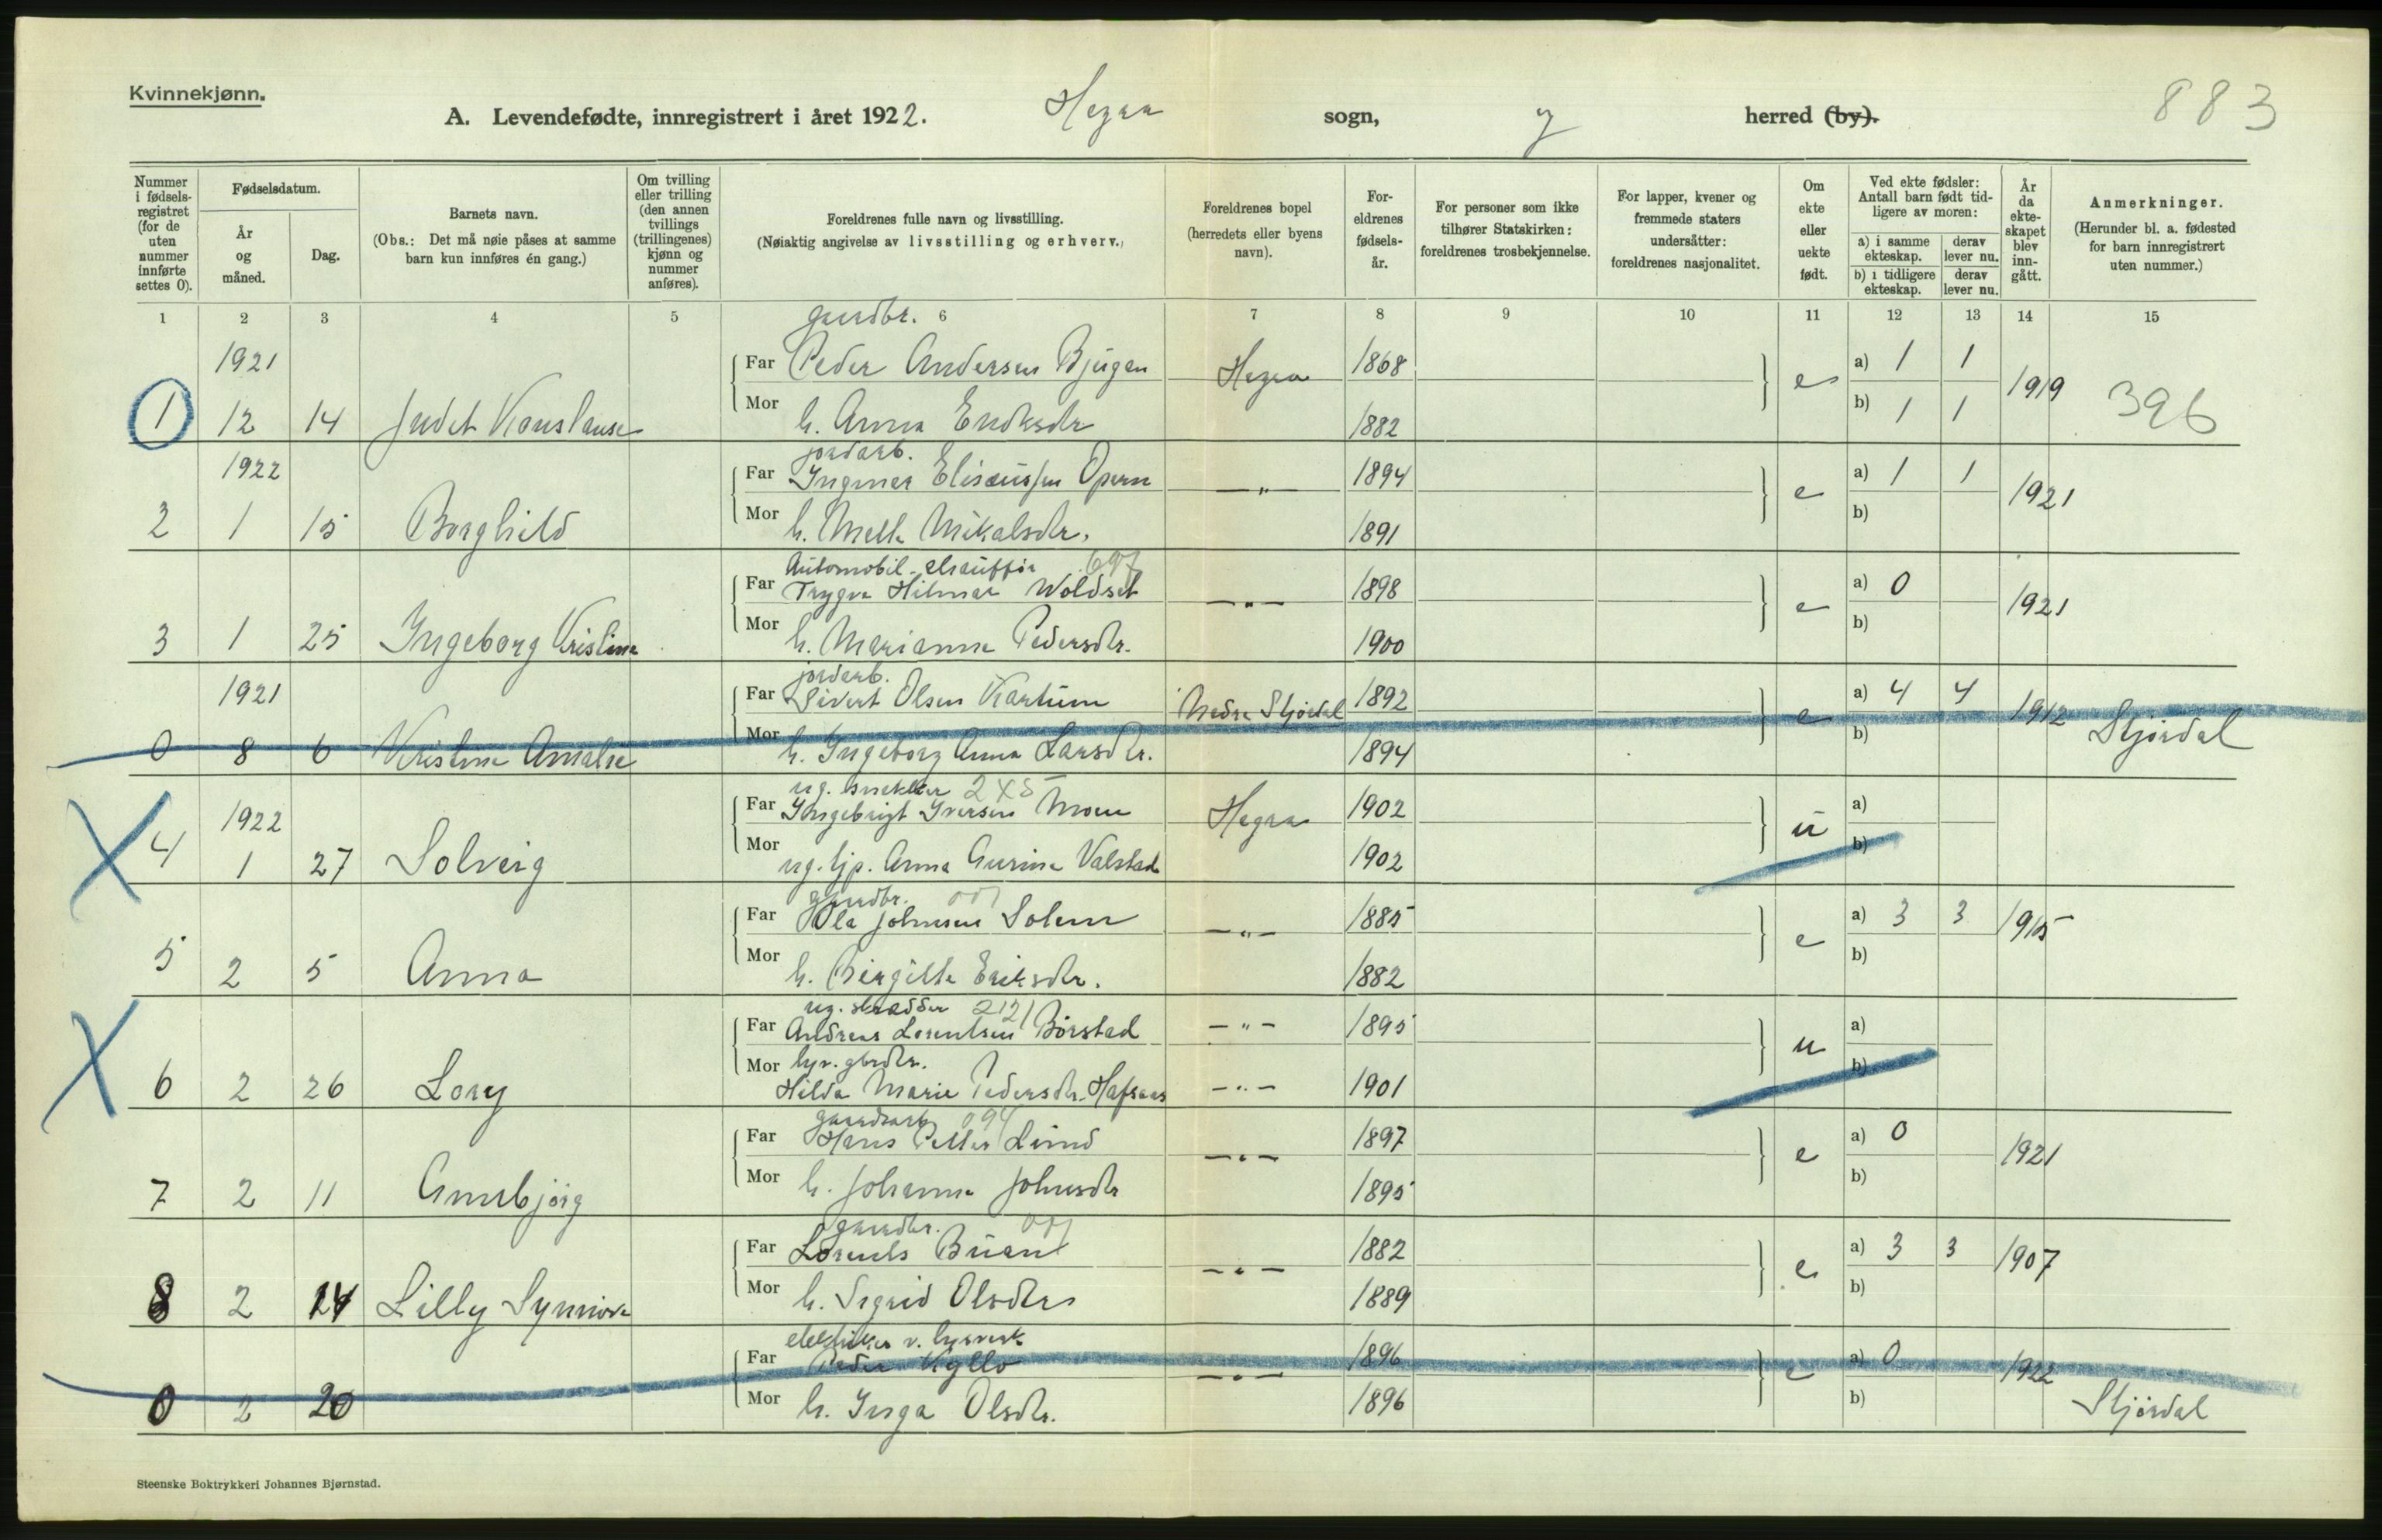 Kvinnekjønn.
A. Levendefødte, innregistrert i året 1922. Hegra sogn, herred (by).
883
Nummer i fødsels-registret (for de uten nummer innførte settes 0).
Fødselsdatum.
År og måned.
Dag.
Barnets navn.
(Obs.: Det må nøie påses at samme barn kun innføres én gang.)
Om tvilling eller trilling (den annen tvillings (trillingenes) kjønn og nummer anføres).
Foreldrenes fulle navn og livsstilling.
(Nøiaktig angivelse av livsstilling og erhverv.)
Foreldrenes bopel (herredets eller byens navn).
For-eldrenes fødsels-år.
For personer som ikke tilhører Statskirken: foreldrenes trosbekjennelse.
For lapper, kvener og fremmede staters undersåtter: foreldrenes nasjonalitet.
Om ekte eller uekte født.
Ved ekte fødsler: Antall barn født tid-ligere av moren:
a) i samme ekteskap. derav lever nu.
b) i tidligere ekteskap. derav lever nu.
År da ekte-skapet blev inn-gått.
Anmerkninger.
(Herunder bl. a. fødested for barn innregistrert uten nummer.)
1 2 3 4 5 6 7 8 9 10 11 12 13 14 15
gaardbr.
1921 Far Peder Andersen Bjugan Hegra 1868 e a) 1 1 1919 396
1 12 14 Mor h. Anna 1882 b) 1 1
jordarb.
1922 Far Ingmar Opem —"— 1894 e a) 1 1 1921
2 1 15 Borghild Mor h. Mikalsdtr. 1891 b)
Automobil-chauffør 697
Far Trygve Hilmar Woldset —"— 1898 e a) 0 1921
3 1 25 Ingeborg Kristine Mor h. Marianne Pedersdtr. 1900 b)
jordarb.
1921 Far Sivert Olsen Kartum Nedre Stjørdal 1892 e a) 4 4 1912 Stjørdal
0 8 6 Kristine Amalie Mor h. Ingeborg Anna Larsdtr. 1894 b)
ug. snekker 2X5
1922 Far Ingebrigt Iversen Moen Hegra 1902 u a)
4 1 27 Solveig Mor ug. tjp. Anna Gurine Valstad 1902 b)
gaardbr. 001
Far Ola Johnsen Solem —"— 1885 e a) 3 3 1915
5 2 5 Anna Mor h. Birgitte Eriksdtr. 1882 b)
ug. skrædder 2121
Far Andreas Lorentsen Børstad —"— 1895 u a)
Mor hjv. gbrdtr.
6 2 26 Lory Hilda Marie Pedersdtr. Hafsaas —"— 1901 b)
gaardsarb. 094
Far Hans Petter Lund —"— 1897 e a) 0 1921
7 2 11 Annbjørg Mor h. Johanna Johnsdtr 1895 b)
gaardbr. 001
Far Lorents Buan —"— 1882 e a) 3 3 1907
8 2 14 Lilly Synnøve Mor h. Sigrid Olsdtr 1889 b)
elektriker v. lysverk
Far Peder Kyllo —"— 1896 e a) 0 1922
0 2 20 Mor h. Inga Olsdtr. 1896 b) Stjørdal
Steenske Boktrykkeri Johannes Bjørnstad.